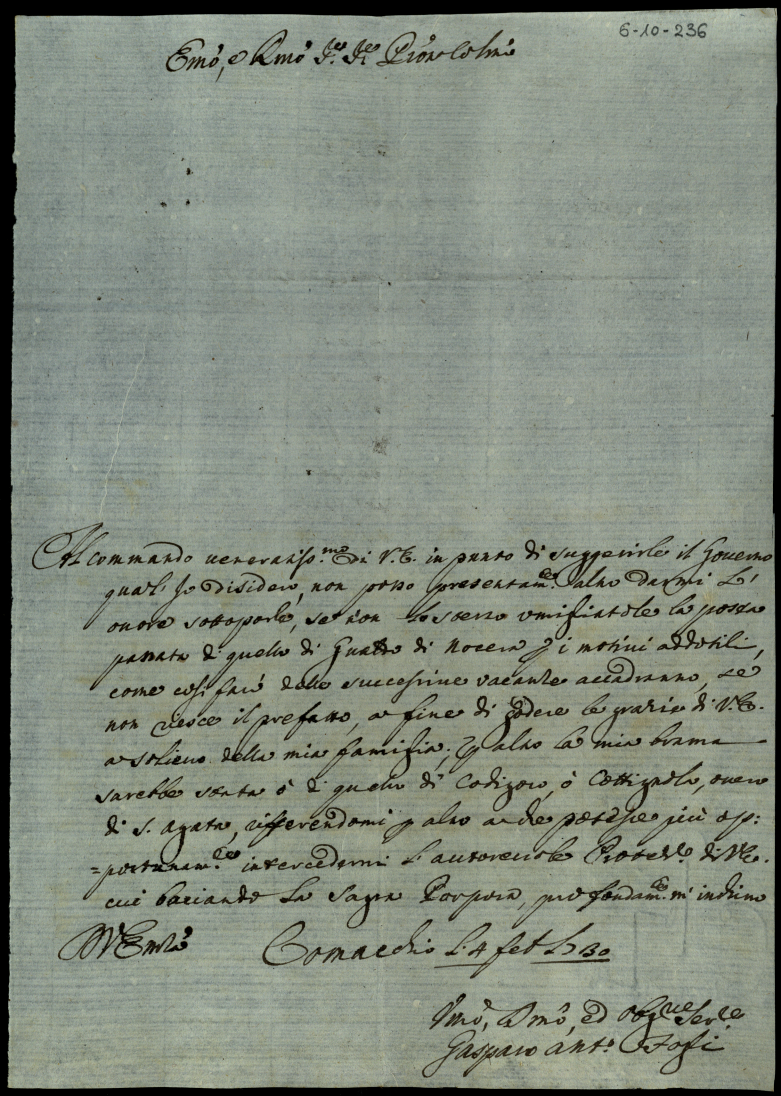 6-10-236
Emô, e Rmô Sre. Sre. Prôn Colmô
Al commando veneratiss.mo di V.E. in punto di suggerirle il Governo
qual' Io disidero, non posso presentam.te altro darmi l'
onore sottoporle, se non lo stesso umifiatole la posta
passata di quello di di Nocera p i motivi addottili,
come cosi farò delle successive vacante accadranno, se
non riesce il prefatto, a fine di godere le grazie di V.E.
a solievo della mia famiglia; p altro la mia brama
sarebbe ò di quello di Codigoro, ò Cottignola, overo
di S. Agata, riferendomi p altro a che potesse più op:
=portunam.te intercedermi l'autorevole Protez.e di V.E.
cui baciando la Sagra Porpora, profondam.te m'inchino
D V Emza
Comacchio li 4 feb 1730
Umô, Dmô, ed Obg.mo Ser.re
Gasparo Ant.o